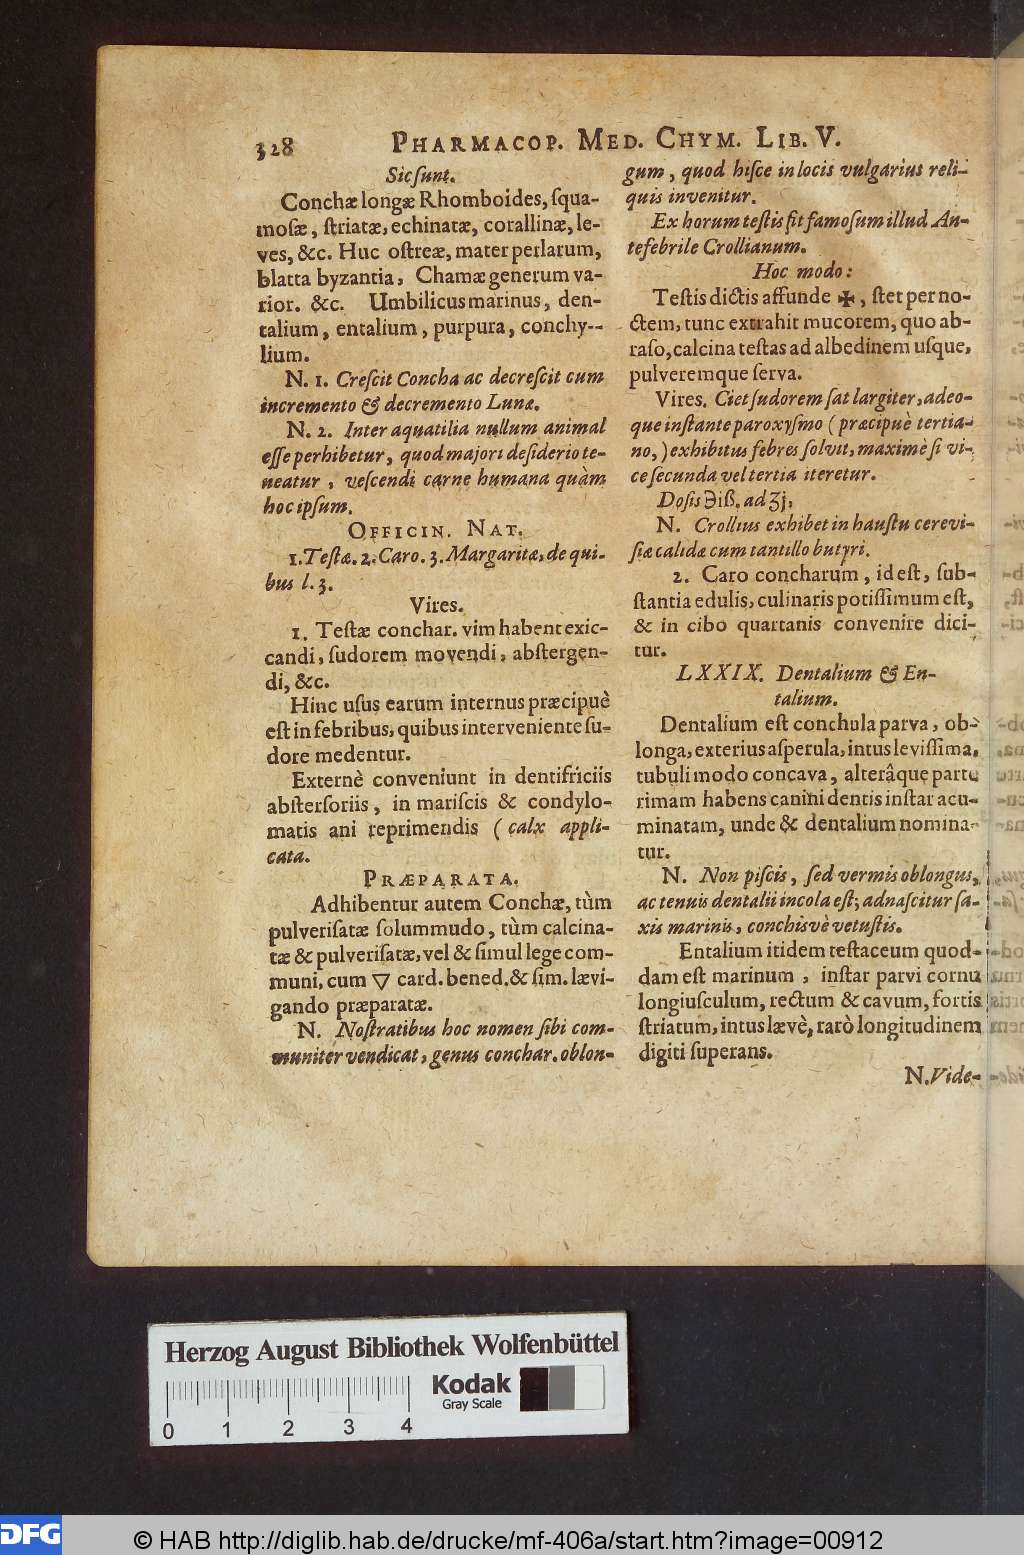 328 PHARMACOP. MED. CHYM. LIB. V.
Sic ſunt.
Conchæ longæ Rhomboides, ſqua-
moſæ, ſtriatæ, echinatæ, corallinæ, le-
ves, &c. Huc oſtreæ, mater perlarum,
blatta byzantia, Chamæ generum va-
rior. &c. Umbilicus marinus, den-
talium, entalium, purpura, conchy--
lium.
N. 1. Creſcit Concha ac decreſcit cum
incremento & decremento Lunæ.
N. 2. Inter aquatilia nullum animal
eſſe perhibetur, quod majori deſiderio te-
neatur, veſcendi carne humana quàm
hoc ipſum.
OFFICIN. NAT.
1. Teſtæ. 2. Caro. 3. Margaritæ, de qui-
bus l. 3.
Vires.
1. Teſtæ conchar. vim habent exic-
candi, ſudorem movendi, abſtergen-
di, &c.
Hinc uſus earum internus præcipuè
eſt in febribus, quibus interveniente ſu-
dore medentur.
Externè conveniunt in dentifriciis
abſterſoriis, in mariſcis & condylo-
matis ani reprimendis (calx appli-
cata.
PRÆPARATA.
Adhibentur autem Conchæ, tùm
pulveriſatæ ſolummudo, tùm calcina-
tæ & pulveriſatæ, vel & ſimul lege com-
muni, cum ▽ card. bened. & ſim. lævi-
gando præparatæ.
N. Noſtratibus hoc nomen ſibi com-
muniter vendicat, genus conchar. oblon-
gum, quod hiſce in locis vulgarius reli-
quis invenitur.
Ex horum teſtis fit famoſum illud An-
tefebrile Crollianum.
Hoc modo:
Teſtis dictis affunde ✠, ſtet per no-
ctem, tunc extrahit mucorem, quo ab-
raſo, calcina teſtas ad albedinem uſque,
pulveremque ſerva.
Vires. Ciet ſudorem ſat largiter, adeo-
que inſtante paroxyſmo (præcipuè tertia-
no,) exhibitus febres ſolvit, maximè ſi vi-
ce ſecunda vel tertia iteretur.
Doſis ℈iß. ad ʒj.
N. Crollius exhibet in hauſtu cerevi-
ſiæ calidæ cum tantillo butyri.
2. Caro concharum, id eſt, ſub-
ſtantia edulis, culinaris potiſſimum eſt,
& in cibo quartanis convenire dici-
tur.
LXXIX. Dentalium & En-
talium.
Dentalium eſt conchula parva, ob-
longa, exterius aſperula, intus leviſſima,
tubuli modo concava, alterâque parte
rimam habens canini dentis inſtar acu-
minatam, unde & dentalium nomina-
tur.
N. Non piſcis, ſed vermis oblongus,
ac tenuis dentalii incola eſt; adnaſcitur ſa-
xis marinis, conchisvè vetuſtis.
Entalium itidem teſtaceum quod-
dam eſt marinum, inſtar parvi cornu
longiuſculum, rectum & cavum, fortis
ſtriatum, intus lævè, rarò longitudinem
digiti ſuperans.
N. Vide-
Herzog August Bibliothek Wolfenbüttel
Kodak
Gray Scale
0 1 2 3 4
DFG
© HAB http://diglib.hab.de/drucke/mf-406a/start.htm?image=00912